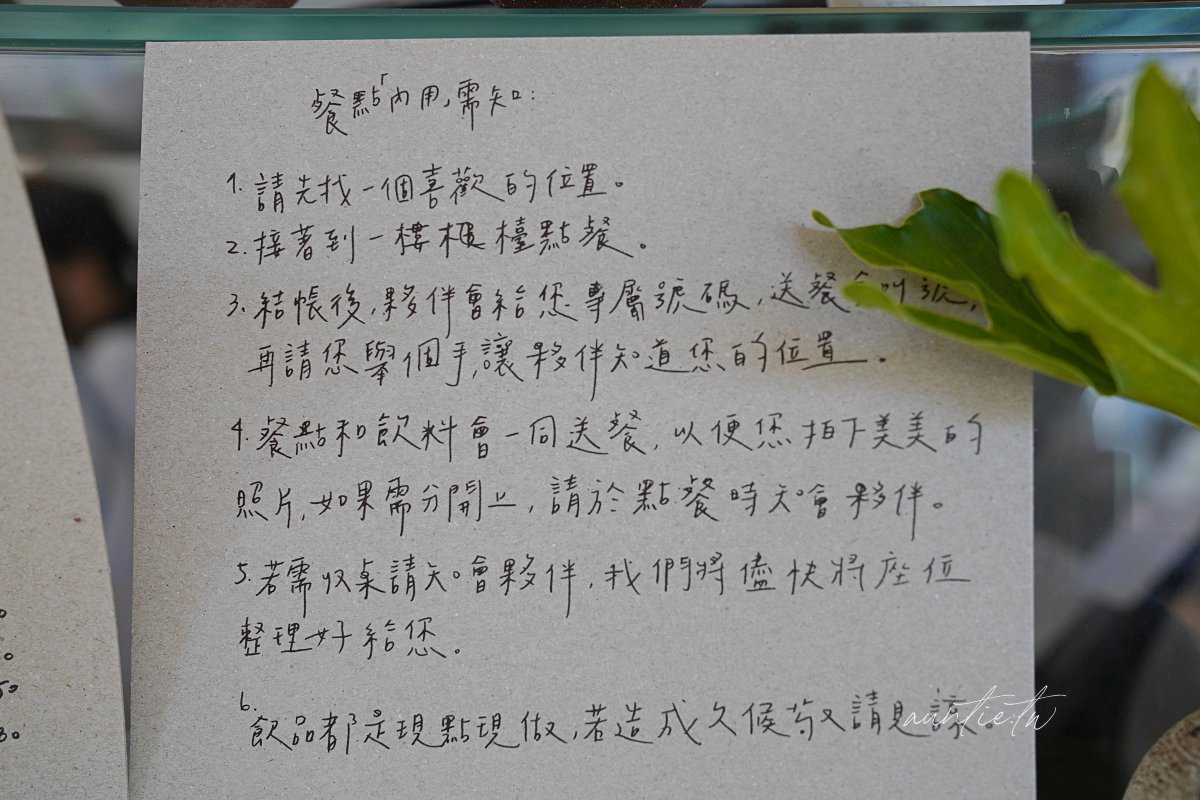 餐點「內用」需知:
1. 請先找一個喜歡的位置。
2. 接著到一樓櫃檯點餐。
3. 結帳後,夥伴會給您專屬號碼,送餐會叫號,
再請您舉個手,讓夥伴知道您的位置。
4. 餐點和飲料會一同送餐,以便您拍下美美的
照片,如果需分開上,請於點餐時知會夥伴。
5. 若需收桌請知會夥伴,我們將儘快將座位
整理好給您。
6.
飲品都是現點現做,若造成久候敬請見諒。
auntie.tw
50
80